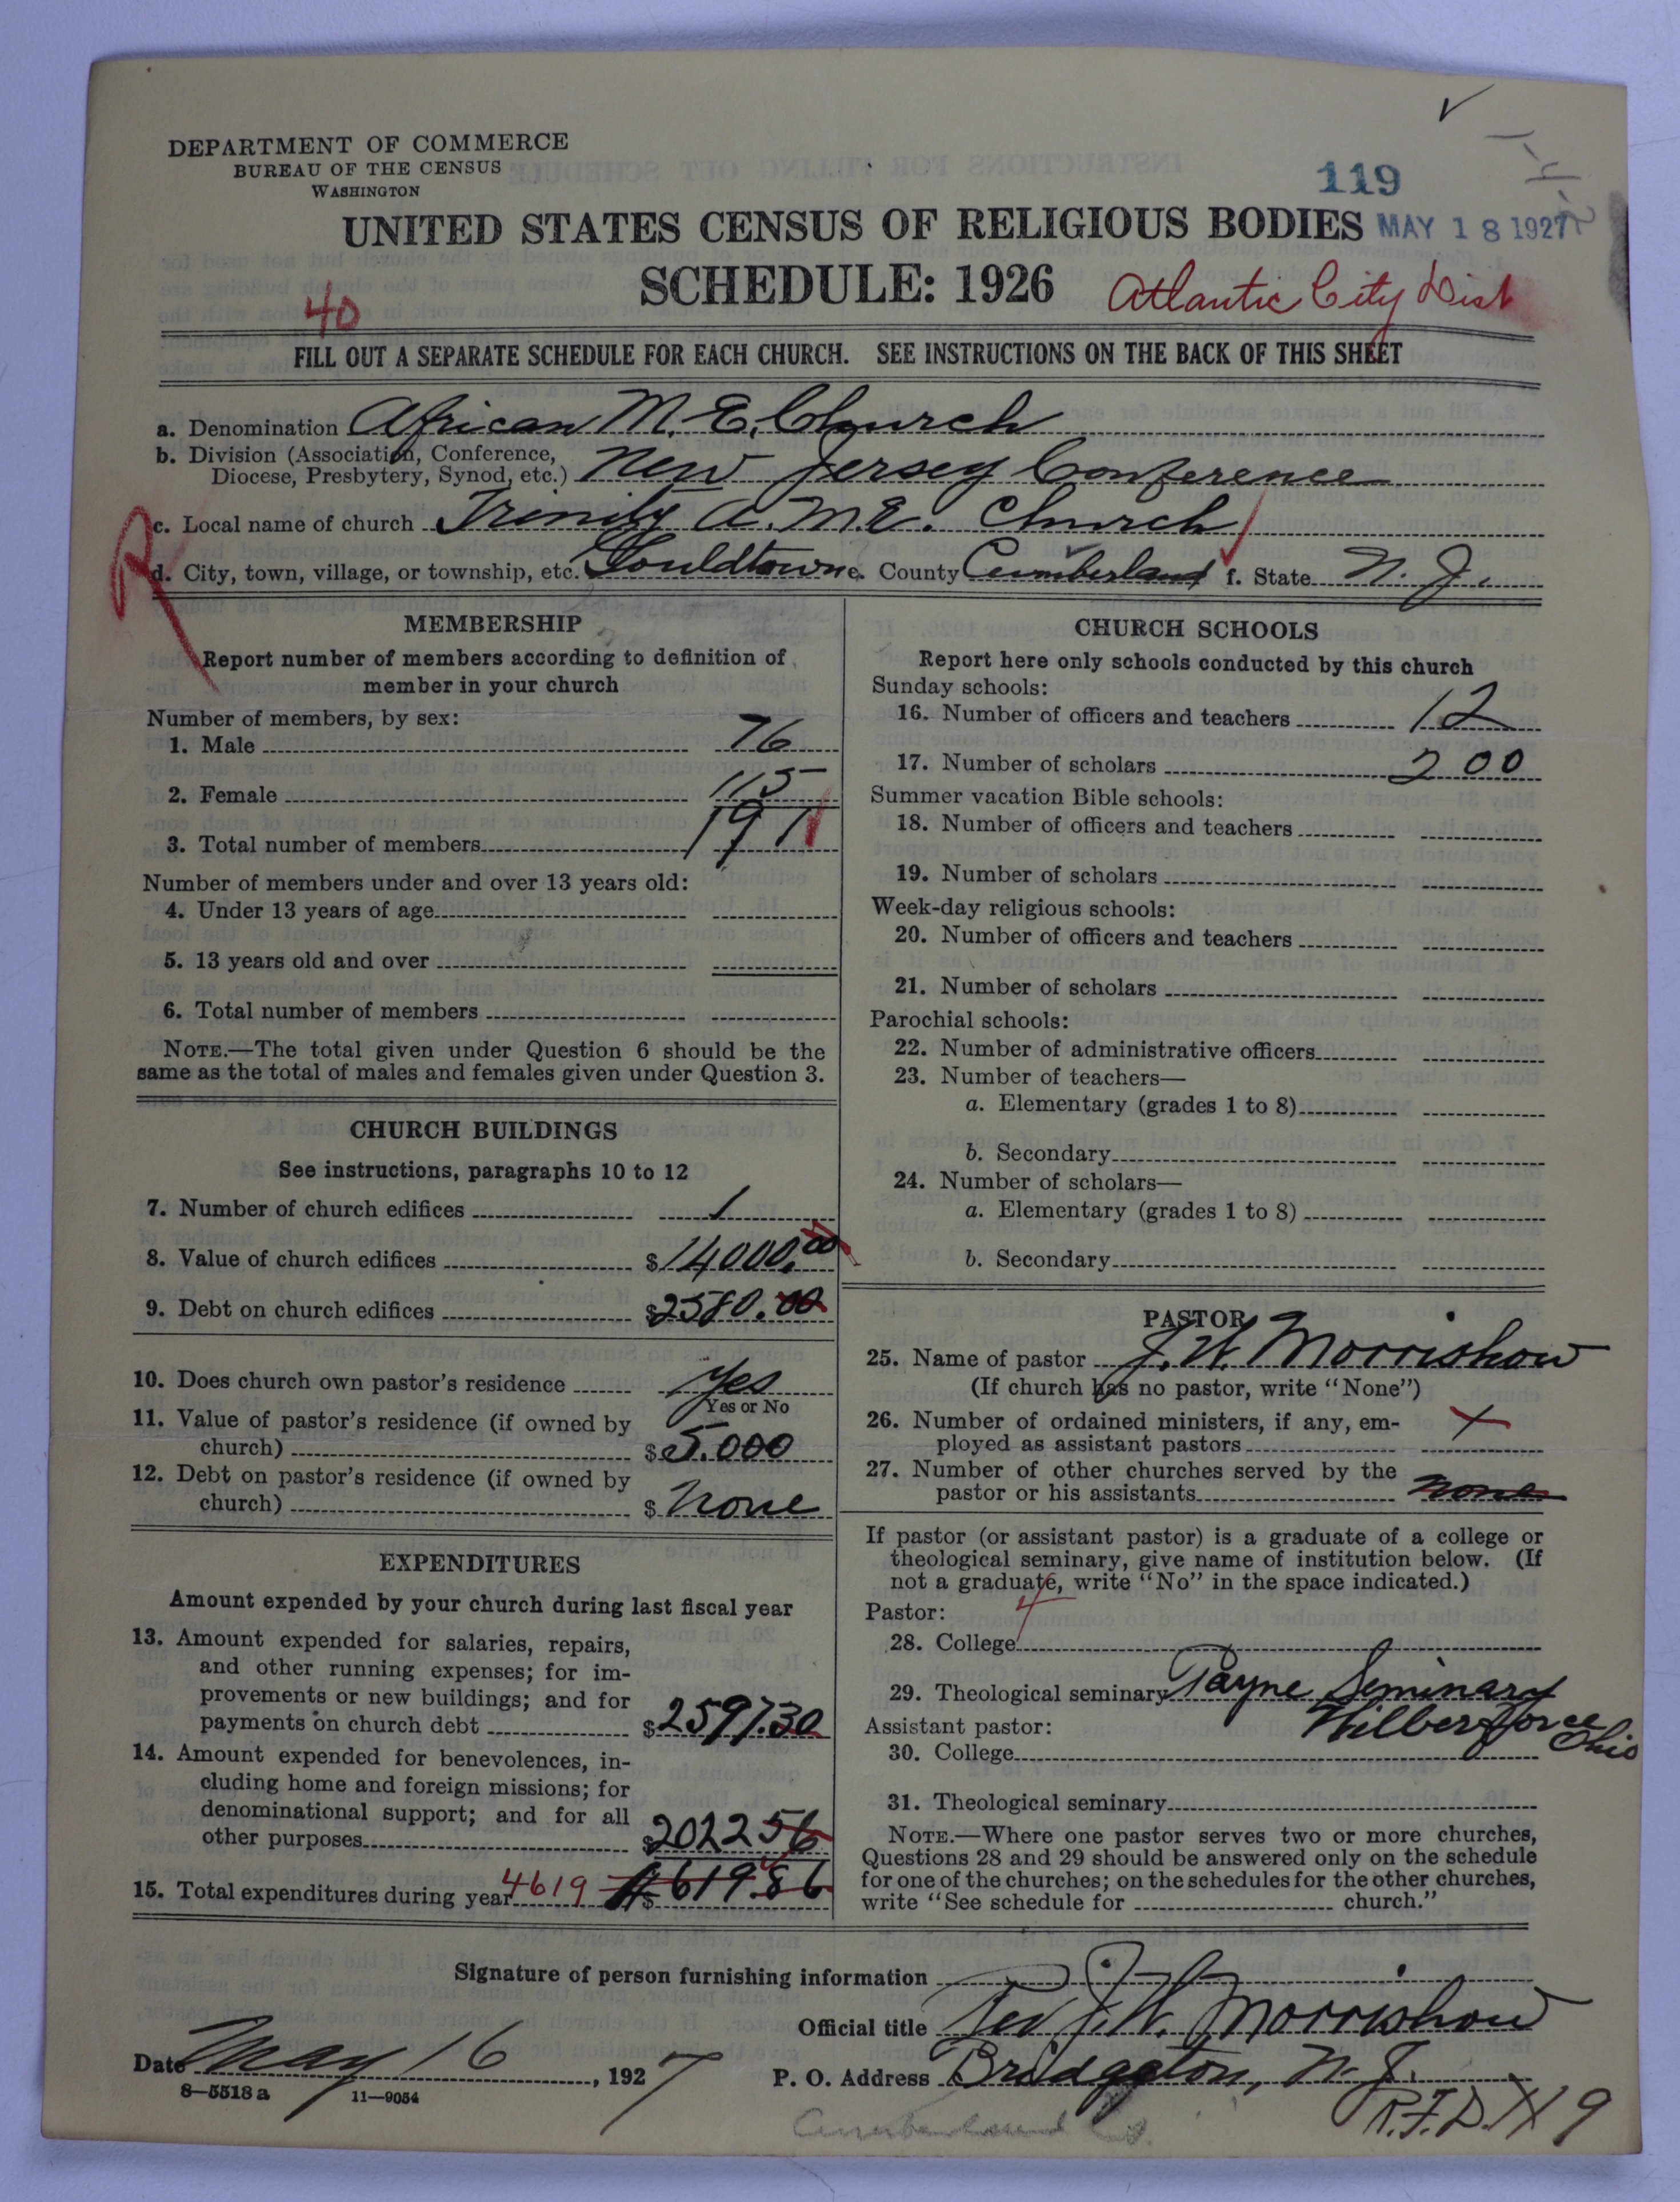 DEPARTMENT OF COMMERCE
BUREAU OF THE CENSUS
WASHINGTON
119
UNITED STATES CENSUS OF RELIGIOUS BODIES
MAY 18 1927
SCHEDULE: 1926
Atlantic City Dist
40
FILL OUT A SEPARATE SCHEDULE FOR EACH CHURCH. SEE INSTRUCTIONS ON THE BACK OF THIS SHEET
a. Denomination African M. E. Church
b. Division (Association, Conference,
Diocese, Presbytery, Synod, etc.) New Jersey Conference
R
c. Local name of church Trinity A.M.E. Church
d. City, town, village, or township, etc. Gouldtown e. County Cumberland f. State N. J.
MEMBERSHIP
Report number of members according to definition of
member in your church
Number of members, by sex:
1. Male 76
2. Female 115
3. Total number of members 191
Number of members under and over 13 years old:
4. Under 13 years of age
5. 13 years old and over
6. Total number of members
NOTE.—The total given under Question 6 should be the
same as the total of males and females given under Question 3.
CHURCH BUILDINGS
See instructions, paragraphs 10 to 12
7. Number of church edifices 1
8. Value of church edifices $14000.00
9. Debt on church edifices $2580.00
10. Does church own pastor's residence Yes
Yes or No
11. Value of pastor's residence (if owned by
church) $5.000
12. Debt on pastor's residence (if owned by
church) $ None
EXPENDITURES
Amount expended by your church during last fiscal year
13. Amount expended for salaries, repairs,
and other running expenses; for im-
provements or new buildings; and for
payments on church debt $2597.30
14. Amount expended for benevolences, in-
cluding home and foreign missions; for
denominational support; and for all
other purposes $2022 56
15. Total expenditures during year 4619 $4619.86
CHURCH SCHOOLS
Report here only schools conducted by this church
Sunday schools:
16. Number of officers and teachers 12
17. Number of scholars 200
Summer vacation Bible schools:
18. Number of officers and teachers
19. Number of scholars
Week-day religious schools:
20. Number of officers and teachers
21. Number of scholars
Parochial schools:
22. Number of administrative officers
23. Number of teachers—
a. Elementary (grades 1 to 8)
b. Secondary
24. Number of scholars—
a. Elementary (grades 1 to 8)
b. Secondary
PASTOR
25. Name of pastor J. W. Morrishow
(If church has no pastor, write "None")
26. Number of ordained ministers, if any, em-
ployed as assistant pastors
27. Number of other churches served by the
pastor or his assistants none
If pastor (or assistant pastor) is a graduate of a college or
theological seminary, give name of institution below. (If
not a graduate, write "No" in the space indicated.)
Pastor:
28. College
29. Theological seminary Payne Seminary
Wilberforce Ohio
Assistant pastor:
30. College
31. Theological seminary
NOTE.—Where one pastor serves two or more churches,
Questions 28 and 29 should be answered only on the schedule
for one of the churches; on the schedules for the other churches,
write "See schedule for church."
Signature of person furnishing information
Official title Rev J. W. Morrishow
Date May 16, 1927
P. O. Address Bridgeton, N. J.
R.F.D. # 9
8—5518 a
11—9054
Cumberland Co.